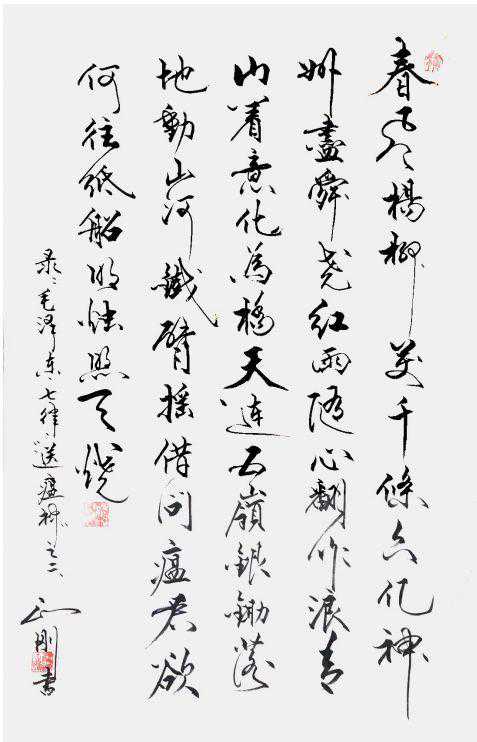 春风杨柳万千條六亿神
州盡舜尧红雨随心翻作浪青
山着意化為橋天連五嶺銀鋤落
地動山河鐵臂摇借问瘟君欲
何往纸船明烛照天燒
录毛泽东七律送瘟神之二
刚書